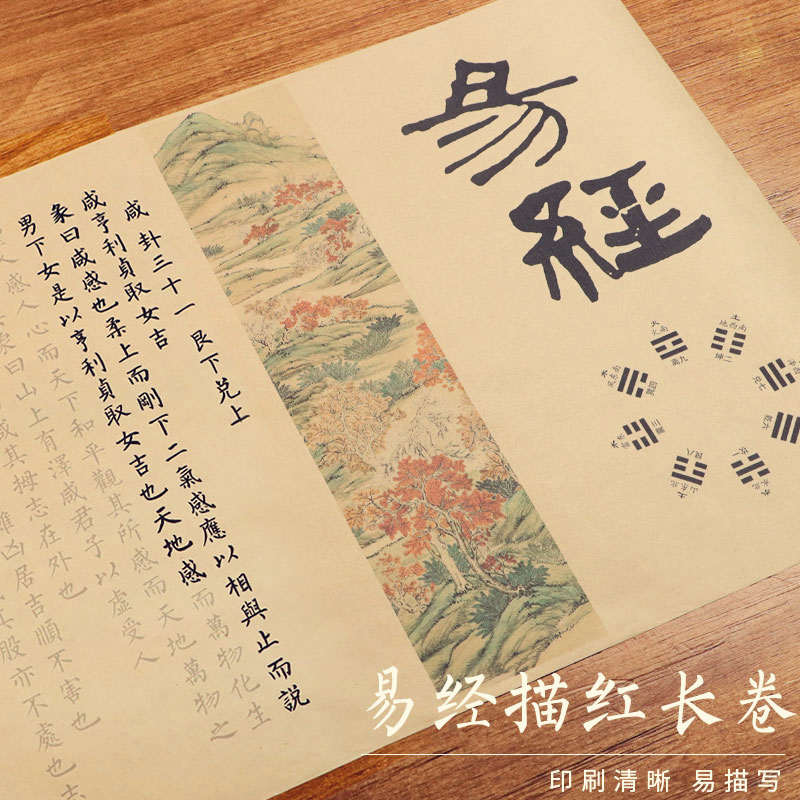 易經
咸卦三十一 艮下兌上
咸亨利貞取女吉
彖曰咸感也柔上而剛下二氣感應以相與止而說
男下女是以亨利貞取女吉也天地感而萬物化生
人感人心而天下和平觀其所感而天地萬物之
象曰山上有澤咸君子以虛受人
咸其拇志在外也
雖凶居吉順不害也
股亦不處也志
易经描红长卷
印刷清晰 易描写